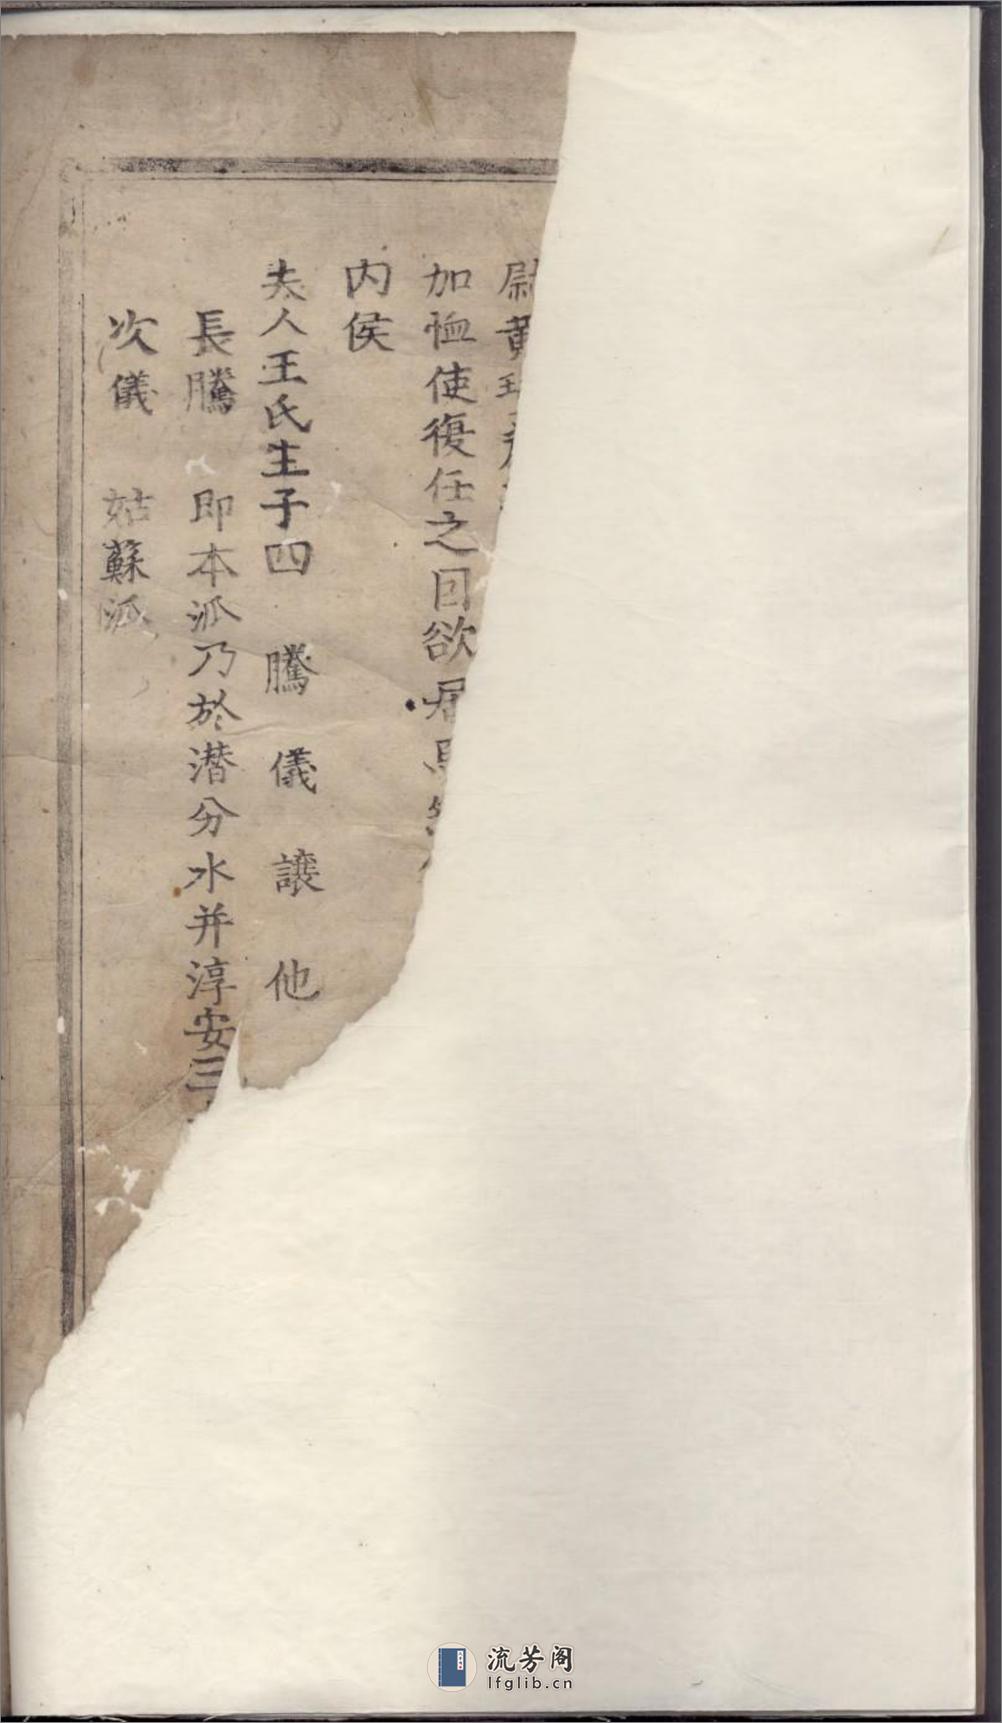 尉黄
加恤使復任之回欲居
内侯
夫人王氏生子四 騰 儀 讓 他
長騰 即本派乃於潛分水并淳安三
次儀 姑蘇派
流芳阁
lfglib.cn